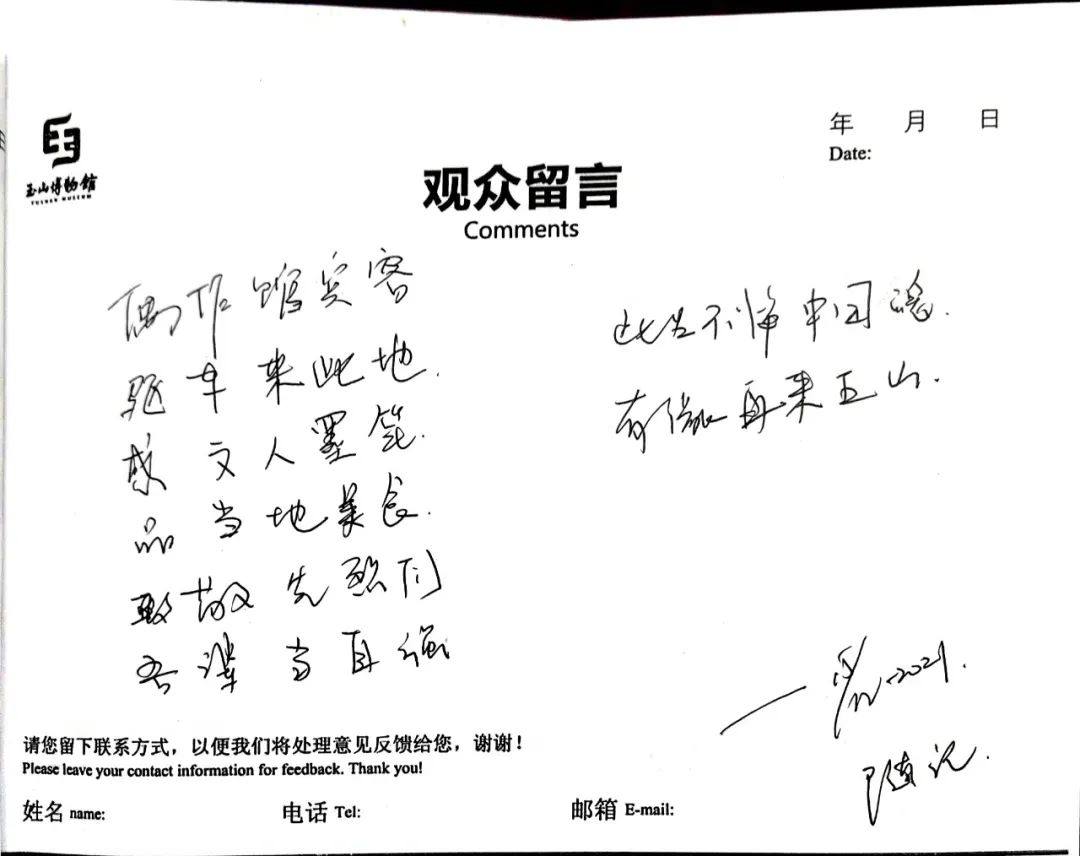 玉山博物馆
YUSHAN MUSEUM
年 月 日
Date:
观众留言
Comments
偶作馆宾客
驱车来此地.
感文人墨笔.
品当地美食.
致敬先烈们
吾辈当自强
此生不悔中国魂.
有缘再来玉山.
2021.
随记.
请您留下联系方式，以便我们将处理意见反馈给您，谢谢！
Please leave your contact information for feedback. Thank you!
姓名 name: 电话 Tel: 邮箱 E-mail: